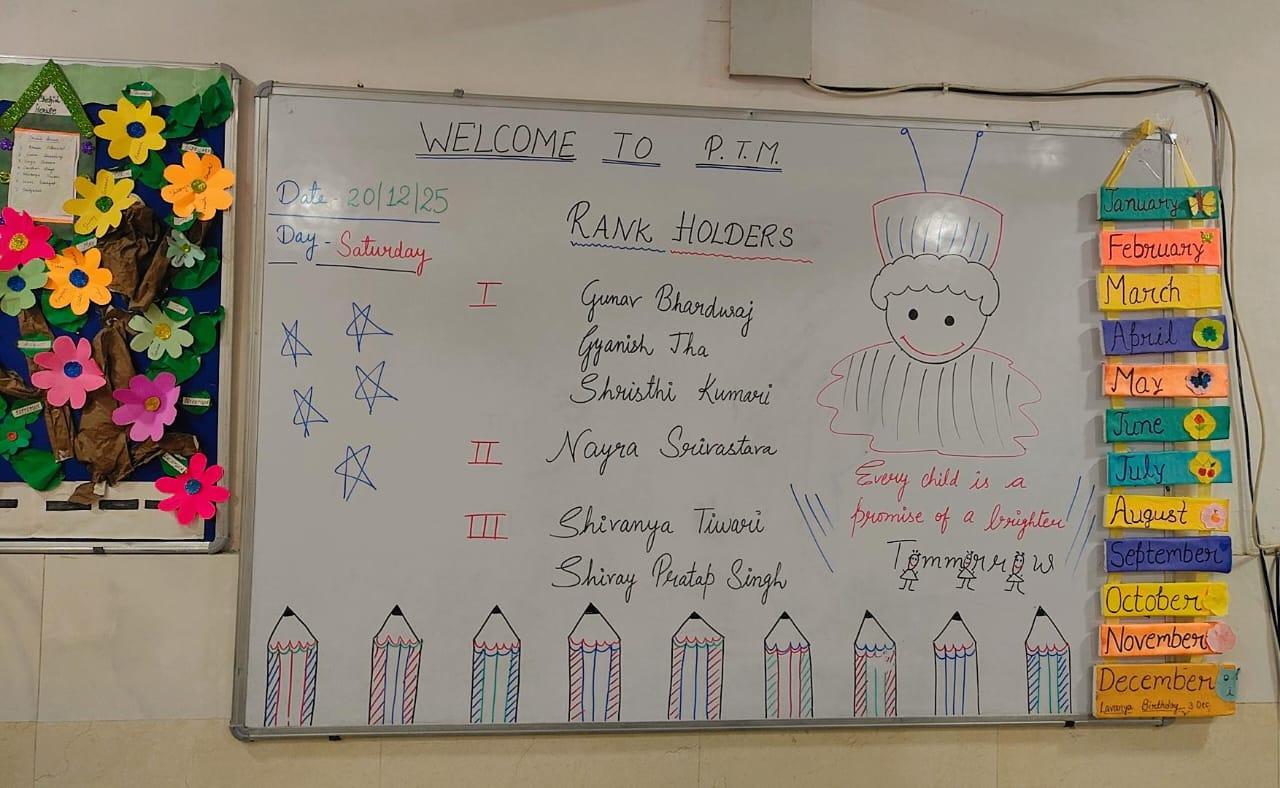 WELCOME TO P.T.M.
Date - 20/12/25
Day - Saturday
RANK HOLDERS
I Gunav Bhardwaj
Gyanish Jha
Shristhi Kumari
II Nayra Srivastava
III Shivanya Tiwari
Shivay Pratap Singh
Every child is a
promise of a brighter
Tommorrow
January
February
March
April
May
June
July
August
September
October
November
December
Lavanya Birthday 3 Dec